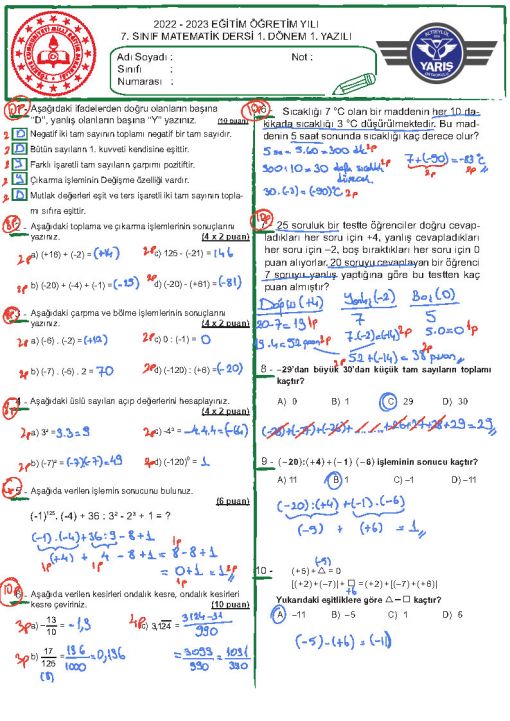 2022 - 2023 EĞİTİM ÖĞRETİM YILI
7. SINIF MATEMATİK DERSİ 1. DÖNEM 1. YAZILI
Adı Soyadı :
Not :
Sınıfı :
Numarası :
YARIŞ
Aşağıdaki ifadelerden doğru olanların başına
"D", yanlış olanların başına "Y" yazınız. (10 puan)
2 D Negatif iki tam sayının toplamı negatif bir tam sayıdır.
2 D Bütün sayıların 1. kuvveti kendisine eşittir.
2 Y Farklı işaretli tam sayıların çarpımı pozitiftir.
2 Y Çıkarma işleminin Değişme özelliği vardır.
2 D Mutlak değerleri eşit ve ters işaretli iki tam sayının topla-
mı sıfıra eşittir.
8p - Aşağıdaki toplama ve çıkarma işlemlerinin sonuçlarını
yazınız. (4 x 2 puan)
2p a) (+16) + (-2) = (+14) 2p c) 125 - (-21) = 146
2p b) (-20) + (-4) + (-1) = (-25) 2p d) (-20) - (+61) = (-81)
3 - Aşağıdaki çarpma ve bölme işlemlerinin sonuçlarını
yazınız. (4 x 2 puan)
2p a) (-6) . (-2) = (+12) 2p c) 0 : (-1) = 0
2p b) (-7) . (-5) . 2 = 70 2p d) (-120) : (+6) = (-20)
4 - Aşağıdaki üslü sayıları açıp değerlerini hesaplayınız.
(4 x 2 puan)
2p a) 3² = 3.3 = 9 2p c) -4³ = -4.4.4 = (-64)
2p b) (-7)² = (-7)(-7) = 49 2p d) (-120)⁰ = 1
5 - Aşağıda verilen işlemin sonucunu bulunuz.
(6 puan)
(-1)¹²⁵. (-4) + 36 : 3² - 2³ + 1 = ?
(-1).(-4) + 36:9 - 8 + 1
(+4) + 4 - 8 + 1 = 8 - 8 + 1
= 0 + 1 = 1
10p 6 - Aşağıda verilen kesirleri ondalık kesre, ondalık kesirleri
kesre çeviriniz. (10 puan)
3p a) -13/10 = -1,3 4p c) 3,124 = 3124-31/990
3p b) 17/125 = 136/1000 = 0,136 = 3093/990 = 1031/330
(8)
Sıcaklığı 7 °C olan bir maddenin her 10 da-
kikada sıcaklığı 3 °C düşürülmektedir. Bu mad-
denin 5 saat sonunda sıcaklığı kaç derece olur?
5 sa = 5.60 = 300 dk 2p 7 + (-90) = -83 °C
300 : 10 = 30 defa sıcaklık 2p
30.(-3) = (-90)°C 2p
25 soruluk bir testte öğrenciler doğru cevap-
ladıkları her soru için +4, yanlış cevapladıkları
her soru için −2, boş bıraktıkları her soru için 0
puan alıyorlar. 20 soruyu cevaplayan bir öğrenci
7 soruyu yanlış yaptığına göre bu testten kaç
puan almıştır?
Doğru (+4) Yanlış (-2) Boş (0)
7 5
7.(-2) = (-14) 2p 5.0 = 0 1p
52 + (-14) = 38 puan
8 - −29'dan büyük 30'dan küçük tam sayıların toplamı
kaçtır?
A) 0 B) 1 C) 29 D) 30
(-28)+(-27)+(-26)+ ....... +26+27+28+29 = 29
9 - (−20):(+4) + (−1) (−6) işleminin sonucu kaçtır?
A) 11 B) 1 C) −1 D) −11
(-20):(+4) + (-1).(-6)
(-5) + (+6) = 1
10 - (+5) + △ = 0
(-5)
[(+2) + (−7)] + □ = (+2) + [(−7) + (+6)]
+6
Yukarıdaki eşitliklere göre △ − □ kaçtır?
A) −11 B) −5 C) 1 D) 6
(-5) - (+6) = (-11)